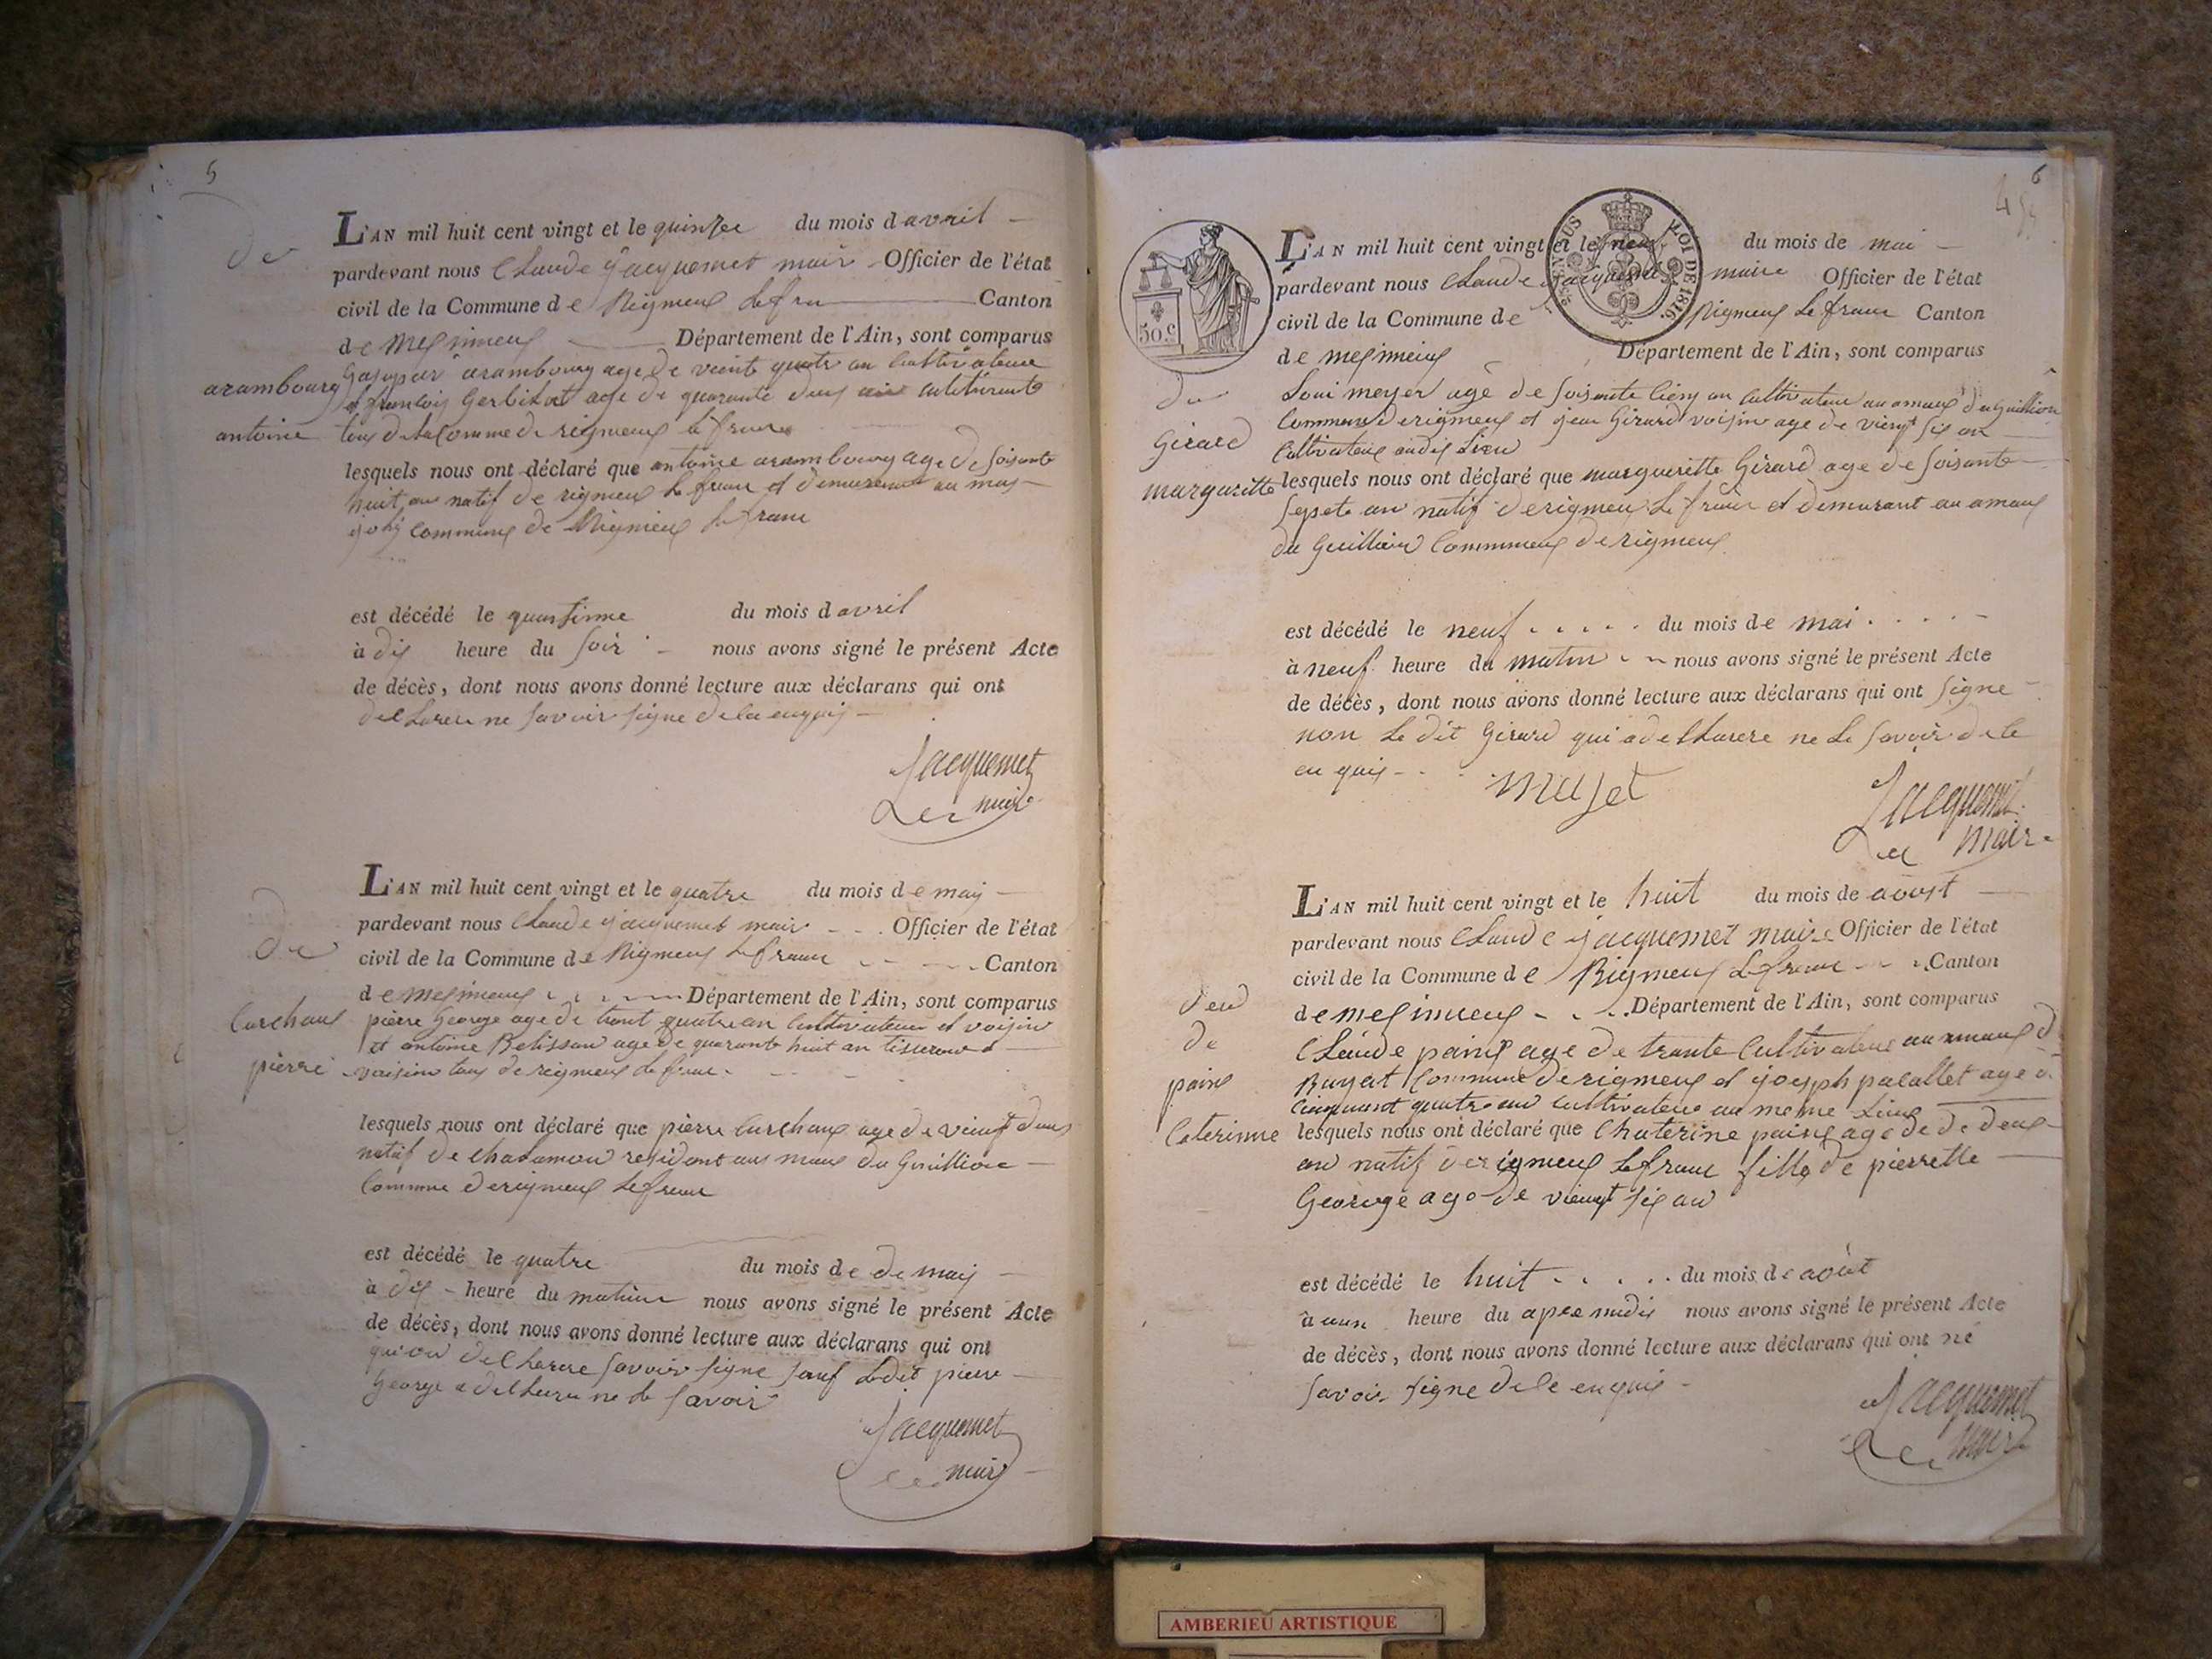 5
L'AN mil huit cent vingt et le quinsee du mois d avril
pardevant nous Claude jacquemet mair Officier de l'état
civil de la Commune de Rigmeux lefran Canton
de mesimeux Département de l'Ain, sont comparus
arambourg antoine
Gaspar arambourg age de veint quatr an cultivateur
et francois Gerbitat age de quarante deux an cultivante
tous de la Comme de rigmeux le franc
lesquels nous ont déclaré que antoine arambourg age de soisante
huit an natif de rigmeux le franc et demurant au mas
commune de Rigmieux le franc
est décédé le du mois d avril
à dix heure du soir nous avons signé le présent Acte
de décès, dont nous avons donné lecture aux déclarans qui ont
delharere ne savoir signe de la
Jacquemet
mair
L'AN mil huit cent vingt et le quatre du mois de maij
pardevant nous Claude jacquemet mair Officier de l'état
civil de la Commune de Rigmeux lefranc Canton
de mesimeux Département de l'Ain, sont comparus
de
Curchaux
pierre
pierre George age de trant quatre an cultivateur et voisin
et antoine Relisson age de quarante huit an tisserand
voisin tous de rigmeux le franc
lesquels nous ont déclaré que pierre Curchaux age de veint deux
natif de chalamon residant aus maux du Guillion
Commune de rigmeux lefranc
est décédé le quatre du mois de de maij
à dix heure du matin nous avons signé le présent Acte
de décès, dont nous avons donné lecture aux déclarans qui ont
qui on delharere savoir signe sauf ledit pierre
George a delharere ne le savoir
Jacquemet
mair
6
50.c
LOI DE 1816
L'AN mil huit cent vingt et le neuf du mois de mai
pardevant nous Claude Jacquemet maire Officier de l'état
civil de la Commune de Rigmeux Le franc Canton
de mesimeux Département de l'Ain, sont comparus
de
Girard
marguritte
Loui meyer agé de soisante an cultivateur au amaux du guillion
Commune de rigmeux et jean Girard voisin age de viengt six an
Cultivateur audis Lieu
lesquels nous ont déclaré que marguerite Girard age de soisante
sepete an natif de rigmeux le franc et demurant au amaux
du Guillion Commune de rigmeux
est décédé le neuf du mois de mai
à neuf heure du matin nous avons signé le présent Acte
de décès, dont nous avons donné lecture aux déclarans qui ont signe
non le dit Girard qui a delharere ne le savoir de le
en quis
Jacquemet
maire
L'AN mil huit cent vingt et le huit du mois de aoust
pardevant nous Claude jacquemet maire Officier de l'état
civil de la Commune de Rigmeux Lefranc Canton
de mesimeux Département de l'Ain, sont comparus
de
paine
Caterinne
Claude paine age de trante Cultivateur au amaux d
Ruyat Commune de rigmeux et joseph palallet age d
cinquant quatre an cultivateur au meme Lieu
lesquels nous ont déclaré que Chaterine paine age de de deux
an natif de rigmeux Lefranc fille de pierrette
George age de viengt six an
est décédé le huit du mois de août
à une heure du apre midis nous avons signé le présent Acte
de décès, dont nous avons donné lecture aux déclarans qui ont ne
savoir signe de le enquis
Jacquemet
maire
AMBERIEU ARTISTIQUE